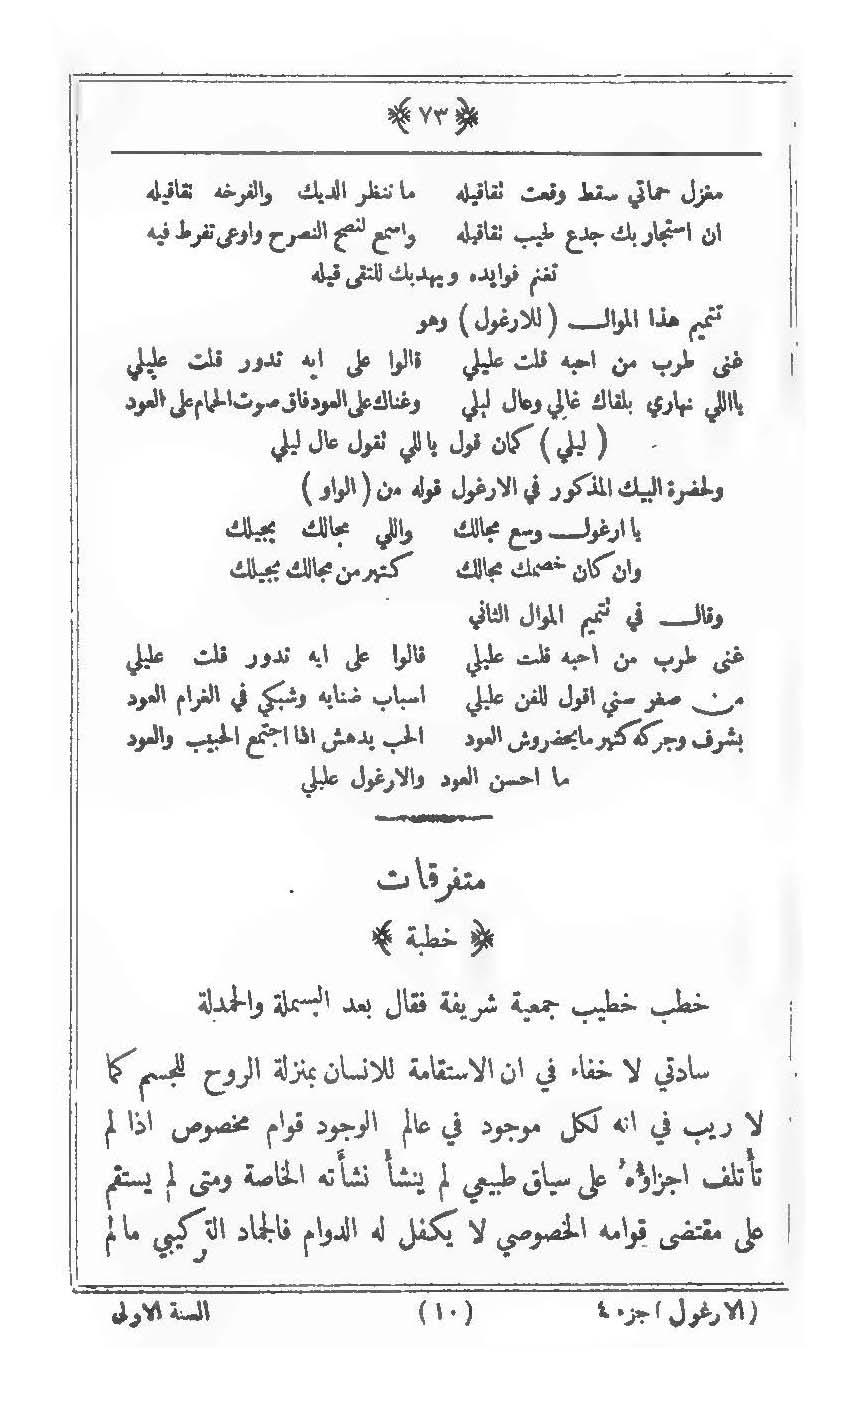 ﴿ ٧٣ ﴾
مغزل حماتي سقط وقعت ثقاقيله ما ننظر الديك والفرخه تقاقيله
ان استجار بك جدع طيب نقاقيله واسمع لنصح النصرح واوعى تفرط فيه
تغنم فوايده ويهدبك للتقى قيله
تتميم هذا الموال (للارغول) وهو
غنى طرب من احبه قلت عليلي قالوا على ايه تدور قلت عليلي
يااللي نهاري بلقاك غالي وعال ليلي وغناك على العود فاق صوت الحمام على العود
(ليلي) كمان قول ياللي تقول عال ليلي
ولحضرة البيك المذكور في الارغول قوله من (الواو)
يا ارغول وسع مجالك واللي مجالك يجيلك
وان كان خصمك مجالك كتهر من مجالك يجيلك
وقال في تتميم الموال الثاني
غنى طرب من احبه قلت عليلي قالوا على ايه تدور قلت عليلي
من صغر سني اقول للفن عليلي اسباب ضنايه وشبكي في الغرام العود
بشرف وجركه كتهر مايحضروش العود الحب يدهش اذا اجتمع الحبيب والعود
ما احسن العود والارغول عليلي
متفرقات
﴿ خطبة ﴾
خطب خطيب جمعية شريفة فقال بعد البسملة والحمدلة
سادتي لا خفاء في ان الاستقامة للانسان بمنزلة الروح للجسم كما
لا ريب في انه لكل موجود في عالم الوجود قوام مخصوص اذا لم
تأتلف اجزاؤه على سياق طبيعي لم ينشأ نشأته الخاصة ومتى لم يستقم
على مقتضى قوامه الخصوصي لا يكفل له الدوام فالجماد التركيبي مالم
(الارغول) جزء ٤ (١٠) السنة الاولى